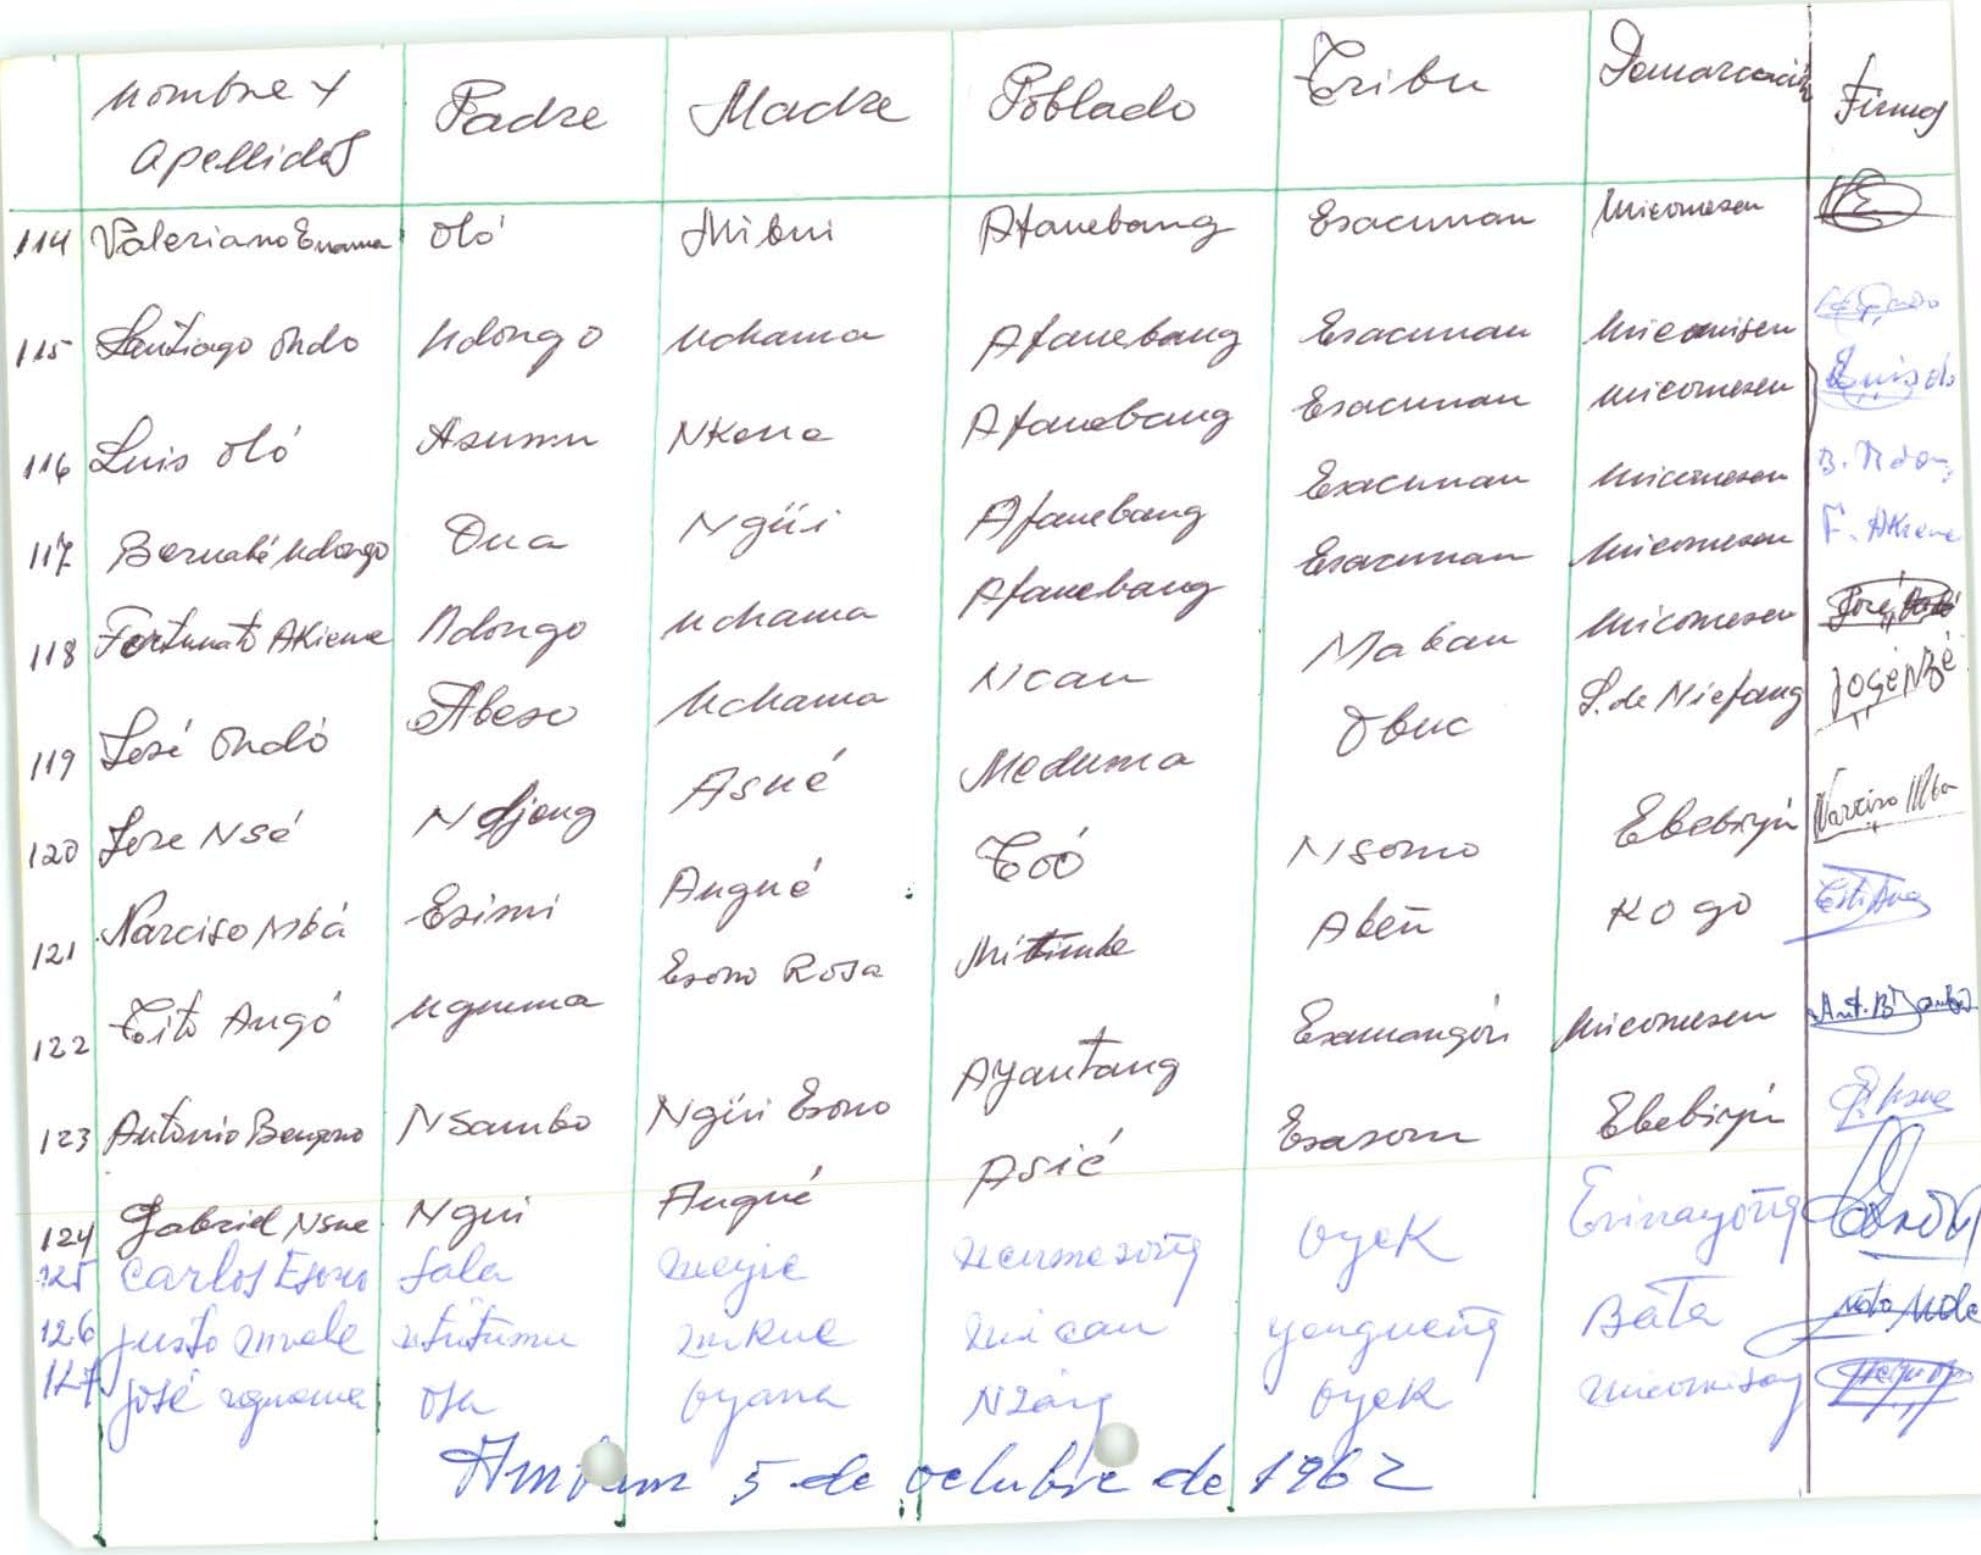 Nombre y Apellidos Padre Madre Poblado Tribu Demarcación Firmas
114 Valeriano Enama Oló Mibui Afanebang Esacunan Micomesen
115 Santiago Ondo Ndongo Nchama Afanebang Esacunan Micomisen
116 Luis Oló Asumu NKene Afanebang Esacunan Micomesen Luis olo
117 Bernabé Ndongo Ona Ngüi Afanebang Esacunan Micomesen B. Ndong
118 Fortunato AKieme Ndongo Nchama Afanebang Esacunan Micomesen F. AKieme
119 José Ondó Abeso Nchama Ncan Maban Micomesen José
120 Jose Nsé Ndjong Asué Meduma Obuc S. de Niefang José Nzé
121 Narciso Mbá Esimi Angué Toó Nsomo Ebebiyin Narciso Mba
122 Tito Angó Nguema Esono Rosa Mitimbe Abeñ Kogo
123 Antonio Bengono Nsambo Ngüi Esono Ayantang Esamangón Micomesen
124 Gabriel Nsue Ngui Angué Asié Esasom Ebebiyin
125 Carlos Esono Sala Oyek
126 justo mvele mican yengueñg Bata
127 josé nguema Osa oyana Nzang oyek micomisong
Ambam 5 de octubre de 1962